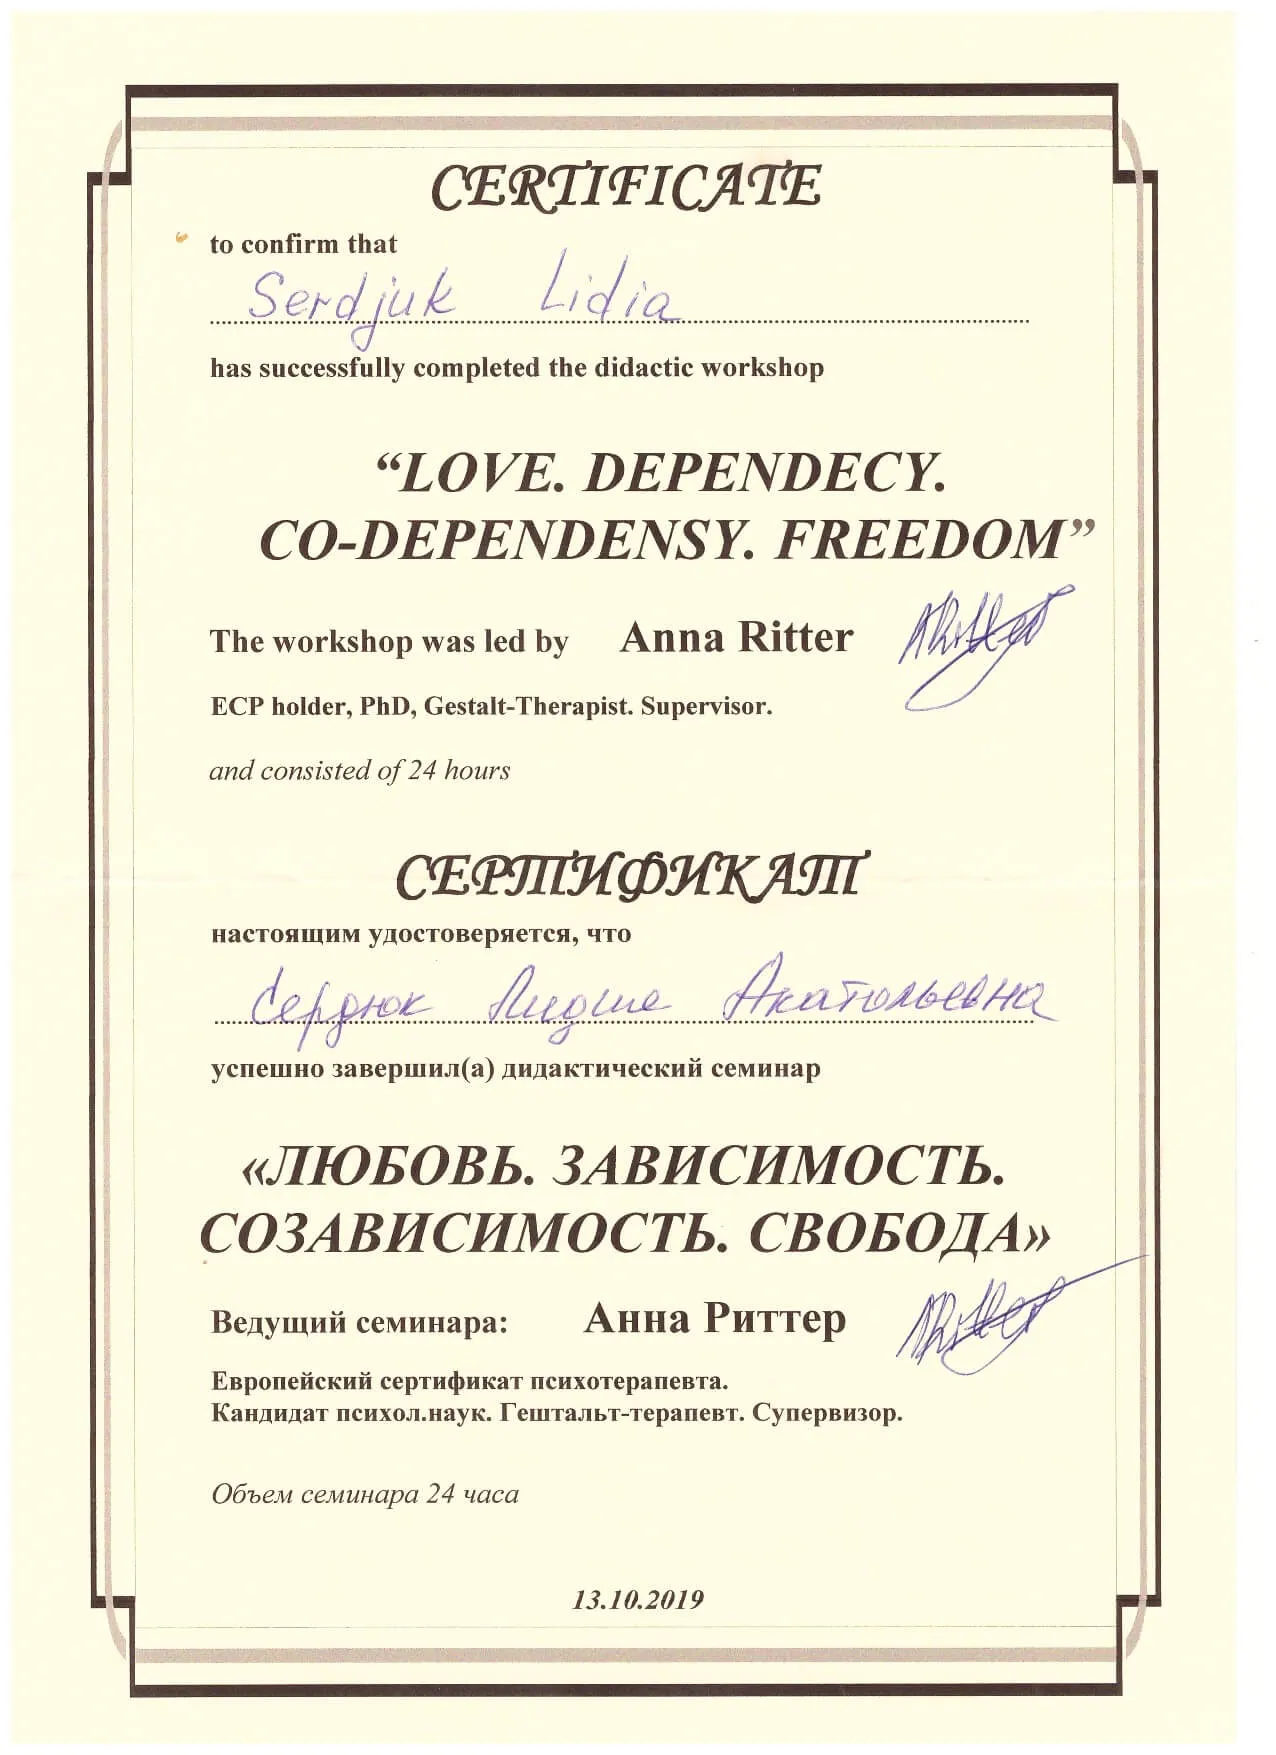 CERTIFICATE
to confirm that
Serdjuk Lidia
has successfully completed the didactic workshop
“LOVE. DEPENDECY.
CO-DEPENDENSY. FREEDOM”
The workshop was led by Anna Ritter
ECP holder, PhD, Gestalt-Therapist. Supervisor.
and consisted of 24 hours
СЕРТИФИКАТ
настоящим удостоверяется, что
Сердюк Лидия Анатольевна
успешно завершил(а) дидактический семинар
«ЛЮБОВЬ. ЗАВИСИМОСТЬ.
СОЗАВИСИМОСТЬ. СВОБОДА»
Ведущий семинара: Анна Риттер
Европейский сертификат психотерапевта.
Кандидат психол.наук. Гештальт-терапевт. Супервизор.
Объем семинара 24 часа
13.10.2019